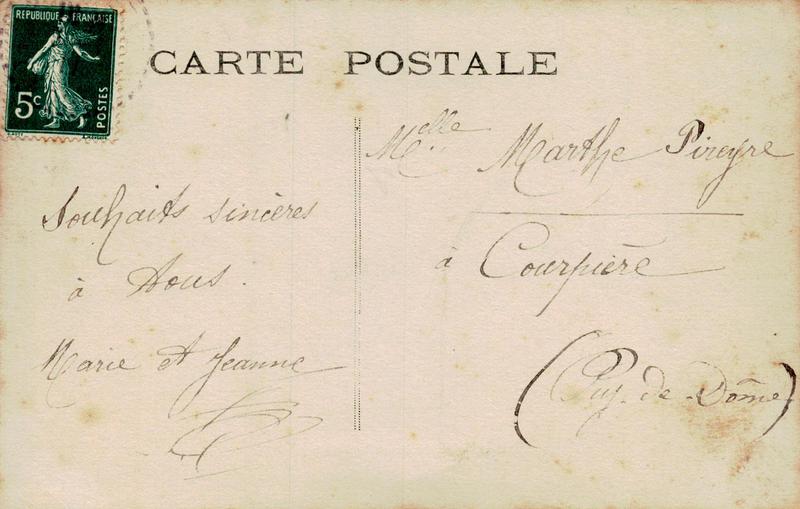 REPUBLIQUE FRANÇAISE
5c
POSTES
CARTE POSTALE
Souhaits sincères
à tous.
Marie et Jeanne
Melle Marthe Pireyre
à Courpière
(Puy-de-Dôme)